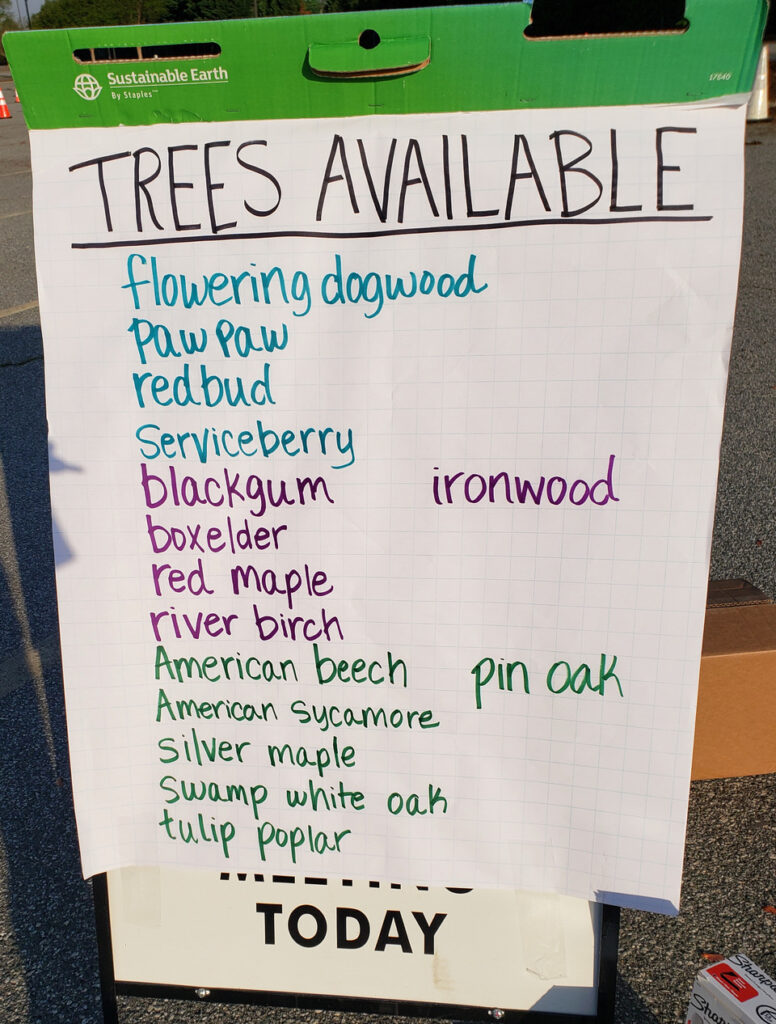 Sustainable Earth
By Staples™
17646
TREES AVAILABLE
flowering dogwood
paw paw
redbud
Serviceberry
blackgum ironwood
boxelder
red maple
river birch
American beech pin oak
American Sycamore
silver maple
swamp white oak
tulip poplar
TODAY
Sharpie